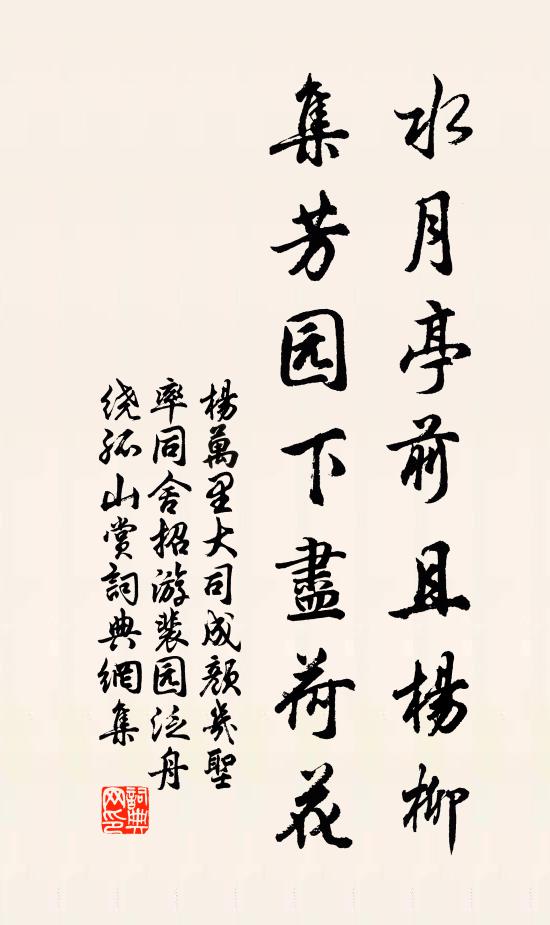 水月亭前且楊柳
集芳园下盡荷花
楊萬里大司成颜幾聖
率同舍招游裴园泛舟
绕孤山賞詞典網集
詞典
网印